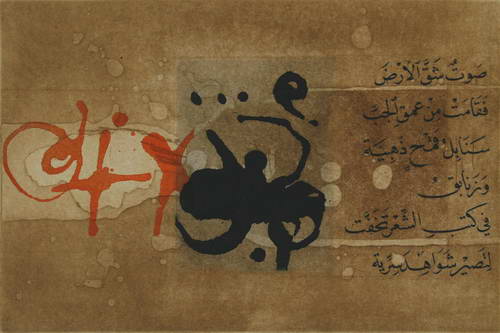 صَوتٌ شَقَّ الأرضَ
فَقَامَتْ مِنْ عمقِ الجبِّ
سَنَابِلُ قمْحٍ ذهَبيَّة
وَزنابقُ
في كتبِ الشِّعرِ تخفَّت
لتَصيرَ شواهدَ سِرية